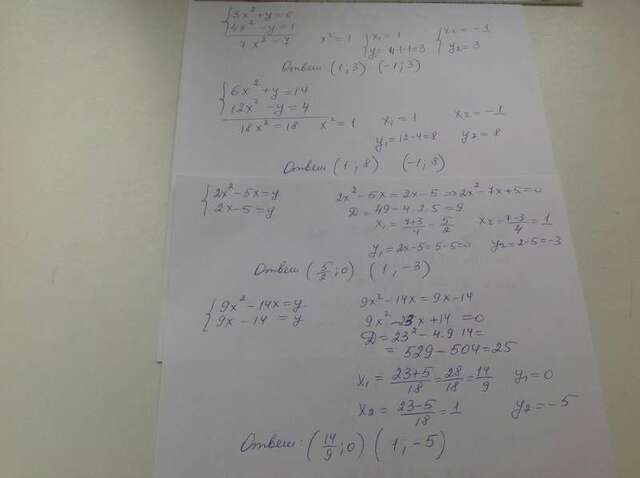 {3x²+y=6
4x²-y=1
7x²=7 x²=1 {x₁=1 y=4·1-1=3 {x₂=-1 y₂=3
Ответ (1;3) (-1;3)
{6x²+y=14
12x²-y=4
18x²=18 x²=1 x₁=1 x₂=-1
y₁=12-4=8 y₂=8
Ответ (1;8) (-1;8)
{2x²-5x=y 2x²-5x=2x-5 ⇒ 2x²-7x+5=0
2x-5=y D=49-4·2·5=9
x₁=7+3/4=5/2 x₂=7-3/4=1
y₁=2x-5=5-5=0 y₂=2-5=-3
Ответ (5/2;0) (1,-3)
{9x²-14x=y 9x²-14x=9x-14
9x-14=y 9x²-23x+14=0
D=23²-4·9·14=
=529-504=25
x₁=23+5/18=28/18=14/9 y₁=0
x₂=23-5/18=1 y₂=-5
Ответ: (14/9;0) (1,-5)